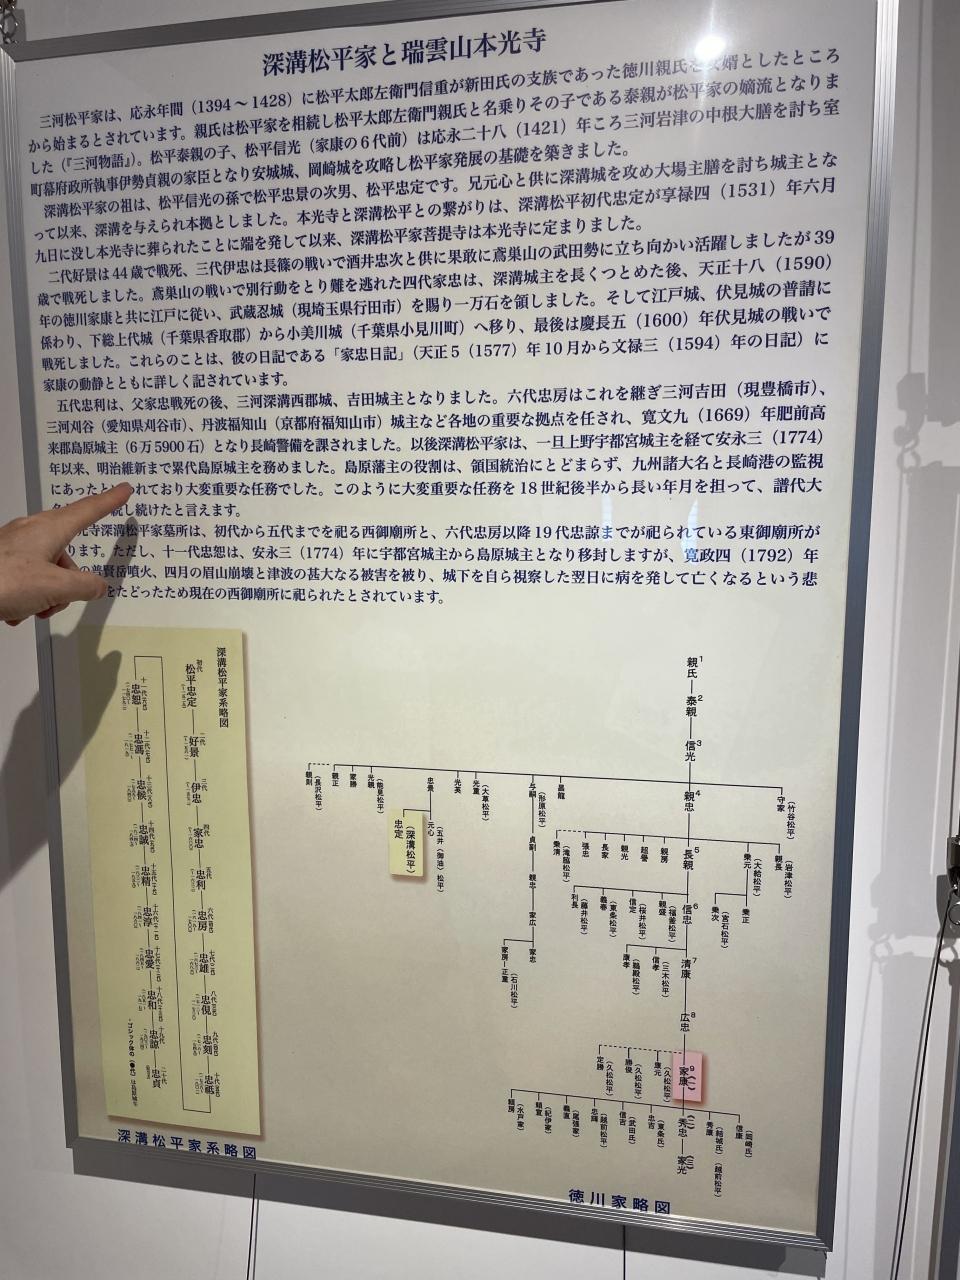 深溝松平家と瑞雲山本光寺
三河松平家は、応永年間（1394～1428）に松平太郎左衛門信重が新田氏の支族であった徳川親氏を 婿としたところ
から始まるとされています。親氏は松平家を相続し松平太郎左衛門親氏と名乗りその子である泰親が松平家の嫡流となりま
した（『三河物語』）。松平泰親の子、松平信光（家康の６代前）は応永二十八（1421）年ころ三河岩津の中根大膳を討ち室
町幕府政所執事伊勢貞親の家臣となり安城城、岡崎城を攻略し松平家発展の基礎を築きました。
深溝松平家の祖は、松平信光の孫で松平忠景の次男、松平忠定です。兄元心と供に深溝城を攻め大場主膳を討ち城主とな
って以来、深溝を与えられ本拠としました。本光寺と深溝松平との繋がりは、深溝松平初代忠定が享禄四（1531）年六月
九日に没し本光寺に葬られたことに端を発して以来、深溝松平家菩提寺は本光寺に定まりました。
二代好景は44歳で戦死、三代伊忠は長篠の戦いで酒井忠次と供に果敢に鳶巣山の武田勢に立ち向かい活躍しましたが39
歳で戦死しました。鳶巣山の戦いで別行動をとり難を逃れた四代家忠は、深溝城主を長くつとめた後、天正十八（1590）
年の徳川家康と共に江戸に従い、武蔵忍城（現埼玉県行田市）を賜り一万石を領しました。そして江戸城、伏見城の普請に
係わり、下総上代城（千葉県香取郡）から小美川城（千葉県小見川町）へ移り、最後は慶長五（1600）年伏見城の戦いで
戦死しました。これらのことは、彼の日記である「家忠日記」（天正５（1577）年10月から文禄三（1594）年の日記）に
家康の動静とともに詳しく記されています。
五代忠利は、父家忠戦死の後、三河深溝西郡城、吉田城主となりました。六代忠房はこれを継ぎ三河吉田（現豊橋市）、
三河刈谷（愛知県刈谷市）、丹波福知山（京都府福知山市）城主など各地の重要な拠点を任され、寛文九（1669）年肥前高
来郡島原城主（6万5900石）となり長崎警備を課されました。以後深溝松平家は、一旦上野宇都宮城主を経て安永三（1774）
年以来、明治維新まで累代島原城主を務めました。島原藩主の役割は、領国統治にとどまらず、九州諸大名と長崎港の監視
にあったと われており大変重要な任務でした。このように大変重要な任務を18世紀後半から長い年月を担って、譜代大
し続けたと言えます。
光寺深溝松平家墓所は、初代から五代までを祀る西御廟所と、六代忠房以降19代忠諒までが祀られている東御廟所が
ります。ただし、十一代忠恕は、安永三（1774）年に宇都宮城主から島原城主となり移封しますが、寛政四（1792）年
の普賢岳噴火、四月の眉山崩壊と津波の甚大なる被害を被り、城下を自ら視察した翌日に病を発して亡くなるという悲
をたどったため現在の西御廟所に祀られたとされています。
深溝松平家系略図
初代
松平忠定
二代
好景
三代
伊忠
四代
家忠
五代
忠利
六代
忠房
七代
忠雄
八代
忠俔
九代
忠刻
十代
忠祗
十一代
忠恕
十二代
忠馮
十三代
忠侯
十四代
忠誠
十五代
忠精
十六代
忠淳
十七代
忠愛
十八代
忠和
十九代
忠諒
二十代
忠貞
深溝松平家系略図
1
親氏
2
泰親
3
信光
4
親忠
守家
（竹谷松平）
昌龍
与嗣
（形原松平）
光重
（大草松平）
光英
忠景
光親
（能見松平）
家勝
親正
親則
（長沢松平）
元心
（五井（御油）松平）
忠定
（深溝松平）
貞副
親忠
家広
家忠
家房
正重
（石川松平）
5
長親
親長
（岩津松平）
乗元
（大給松平）
乗正
乗次
（宮石松平）
親房
超誉
親光
長家
張忠
乗清
（滝脇松平）
6
信忠
親盛
（福釜松平）
信定
（桜井松平）
義春
（東条松平）
利長
（藤井松平）
7
清康
信孝
（三木松平）
康孝
（鵜殿松平）
8
広忠
9（一）
家康
康元
（久松松平）
勝俊
（久松松平）
定勝
（久松松平）
信康
（岡崎氏）
秀康
（結城氏）（越前松平）
（二）
秀忠
忠吉
（東条氏）
信吉
（武田氏）
忠輝
（越前松平）
義直
（尾張家）
頼宣
（紀伊家）
頼房
（水戸家）
（三）
家光
徳川家略図